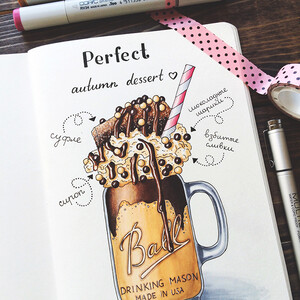 Perfect
autumn dessert
шоколадные
шарики
суфле
взбитые
сливки
сироп
Ball
DRINKING MASON
MADE IN USA